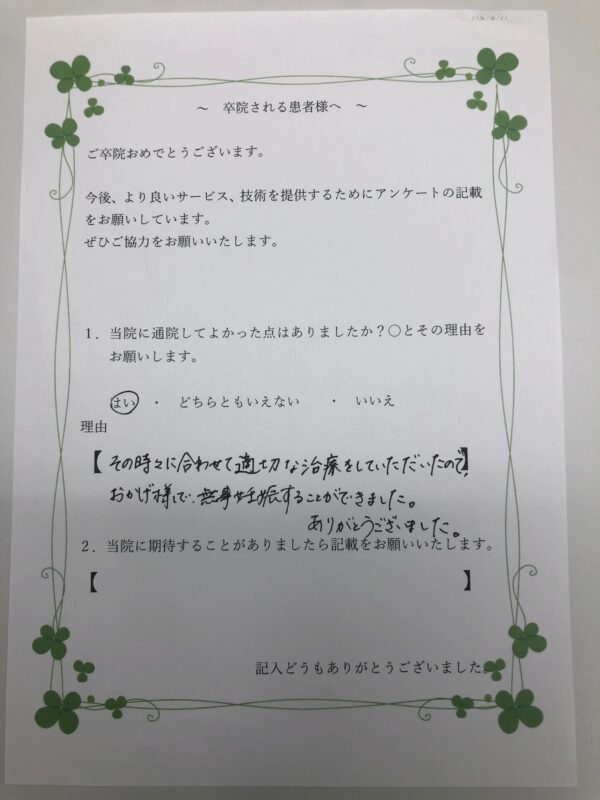 ～　卒院される患者様へ　～
ご卒院おめでとうございます。
今後、より良いサービス、技術を提供するためにアンケートの記載
をお願いしています。
ぜひご協力をお願いいたします。
１．当院に通院してよかった点はありましたか？○とその理由を
お願いします。
はい　・　どちらともいえない　・　いいえ
理由
【その時々に合わせて適切な治療をしていただいたので】、
おかげ様で、無事妊娠することができました。
ありがとうございました。
２．当院に期待することがありましたら記載をお願いいたします。
【　】
記入どうもありがとうございました。